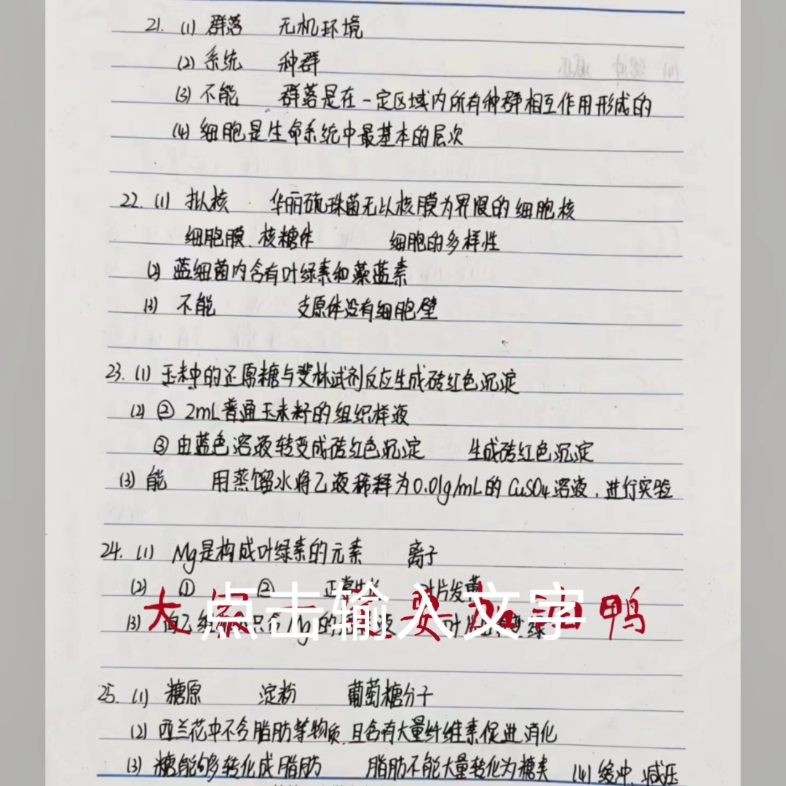 21. (1) 群落 无机环境
(2) 系统 种群
(3) 不能 群落是在一定区域内所有种群相互作用形成的
(4) 细胞是生命系统中最基本的层次
22. (1) 拟核 华丽硫珠菌无以核膜为界限的细胞核
细胞膜、核糖体 细胞的多样性
(2) 蓝细菌内含有叶绿素和藻蓝素
(3) 不能 支原体没有细胞壁
23. (1) 玉米中的还原糖与斐林试剂反应生成砖红色沉淀
(2) ② 2mL普通玉米籽的组织样液
③ 由蓝色溶液转变成砖红色沉淀 生成砖红色沉淀
(3) 能 用蒸馏水将乙液稀释为0.01g/mL的CuSO4溶液,进行实验
24. (1) Mg是构成叶绿素的元素 离子
(2) ① ② 正常生长 叶片发黄
大 点击输入文字 要 加油鸭
(3) 向乙组 Mg的 液 叶片 变绿
25. (1) 糖原 淀粉 葡萄糖分子
(2) 西兰花中不含脂肪等物质,且含有大量纤维素促进消化
(3) 糖能够转化成脂肪 脂肪不能大量转化为糖类 (4) 缓冲、减压